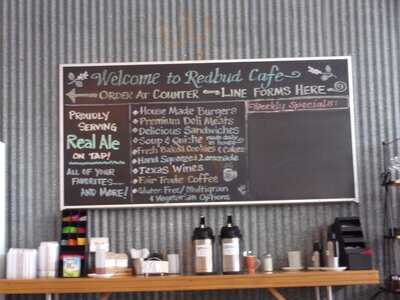 Welcome to Redbud Cafe
Order at Counter Line Forms Here
Proudly
Serving
Real Ale
on Tap!
All of your
favorites....
and More!
House Made Burgers
Premium Deli Meats
Delicious Sandwiches
Soup & Quiche made daily in house
Fresh Baked Cookies & Cakes
Hand Squeezed Lemonade
Texas Wines
Fair Trade Coffee
Gluten Free/Multigrain
& Vegetarian Options
Weekly Specials: